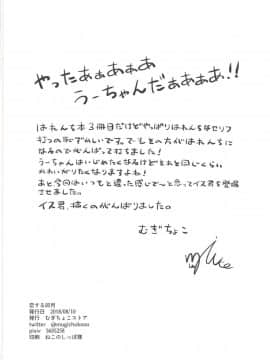 やったぁぁぁぁぁ
うーちゃんだぁぁぁぁ!!
はれんち本3冊目だけどやっぱりはれんちなセリフ
打つの恥ずかしいです。でもその方がはれんちに
なるのでがんばって打ちました!
うーちゃんはいじめたくなるけどそれと同じくらい
かわいがりたくなりますよね!
あと今回はいつもと違った感じで…と思ってイヌ君を登場
させました。
イヌ君、描くのがんばりました。
むぎちょこ
発行日 2018/08/10
発行 むぎちょこストア
twitter @mugichokooo
pixiv 3605258
印刷 ねこのしっぽ様